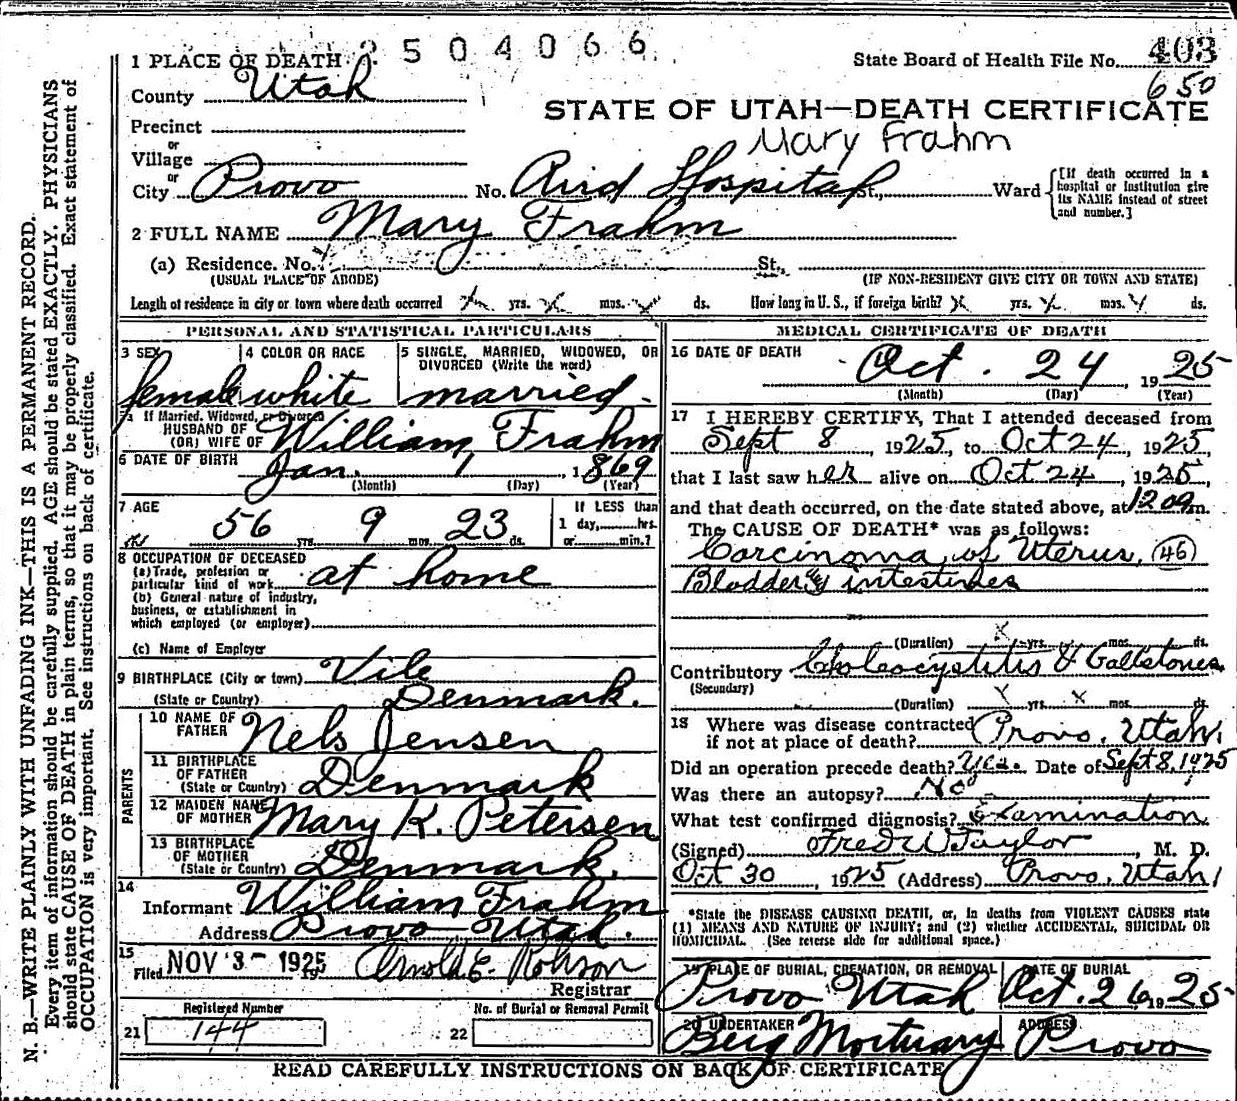 2504066
1 PLACE OF DEATH
State Board of Health File No. 403
650
County Utah
STATE OF UTAH—DEATH CERTIFICATE
Precinct
or
Mary Frahm
Village
or
City Provo No. Aird Hospital St., Ward
[If death occurred in a hospital or institution give its NAME instead of street and number.]
2 FULL NAME Mary Frahm
(a) Residence. No. St.
(USUAL PLACE OF ABODE) (IF NON-RESIDENT GIVE CITY OR TOWN AND STATE)
Length of residence in city or town where death occurred yrs. mos. ds. How long in U. S., if foreign birth? yrs. mos. ds.
PERSONAL AND STATISTICAL PARTICULARS
3 SEX 4 COLOR OR RACE 5 SINGLE, MARRIED, WIDOWED, OR DIVORCED (Write the word)
female white married
5a If Married, Widowed, or Divorced
HUSBAND OF
(OR) WIFE OF William Frahm
6 DATE OF BIRTH Jan. 1 1869
(Month) (Day) (Year)
7 AGE 56 yrs. 9 mos. 23 ds.
If LESS than
1 day, hrs.
or min.?
8 OCCUPATION OF DECEASED
(a) Trade, profession or
particular kind of work at home
(b) General nature of industry,
business, or establishment in
which employed (or employer)
(c) Name of Employer
9 BIRTHPLACE (City or town) Vile
(State or Country) Denmark.
PARENTS
10 NAME OF
FATHER Nels Jensen
11 BIRTHPLACE
OF FATHER
(State or Country) Denmark
12 MAIDEN NAME
OF MOTHER Mary K. Petersen
13 BIRTHPLACE
OF MOTHER
(State or Country) Denmark.
14
Informant William Frahm
Address Provo Utah.
15
Filed NOV 3- 1925 Arnold E. Robison
Registrar
Registered Number No. of Burial or Removal Permit
21 144 22
MEDICAL CERTIFICATE OF DEATH
16 DATE OF DEATH
Oct. 24, 1925
(Month) (Day) (Year)
17 I HEREBY CERTIFY, That I attended deceased from
Sept 8, 1925, to Oct 24, 1925
that I last saw her alive on Oct 24, 1925,
and that death occurred, on the date stated above, at 1209 m.
The CAUSE OF DEATH* was as follows:
Carcinoma of Uterus, (46)
Bladder & intestines
(Duration) yrs. mos. ds.
Contributory Cholecystitis & Gallstones
(Secondary)
(Duration) yrs. mos. ds.
18 Where was disease contracted
if not at place of death? Provo, Utah,
Did an operation precede death? Yes. Date of Sept 8, 1925
Was there an autopsy? No
What test confirmed diagnosis? Examination
(Signed) Fred W Taylor, M. D.
Oct 30, 1925 (Address) Provo, Utah,
*State the DISEASE CAUSING DEATH, or, in deaths from VIOLENT CAUSES state
(1) MEANS AND NATURE OF INJURY; and (2) whether ACCIDENTAL, SUICIDAL OR
HOMICIDAL. (See reverse side for additional space.)
19 PLACE OF BURIAL, CREMATION, OR REMOVAL DATE OF BURIAL
Provo Utah Oct. 26 1925
20 UNDERTAKER ADDRESS
Berg Mortuary Provo
READ CAREFULLY INSTRUCTIONS ON BACK OF CERTIFICATE
N. B.—WRITE PLAINLY WITH UNFADING INK—THIS IS A PERMANENT RECORD.
Every item of information should be carefully supplied. AGE should be stated EXACTLY. PHYSICIANS
should state CAUSE OF DEATH in plain terms, so that it may be properly classified. Exact statement of
OCCUPATION is very important. See instructions on back of certificate.